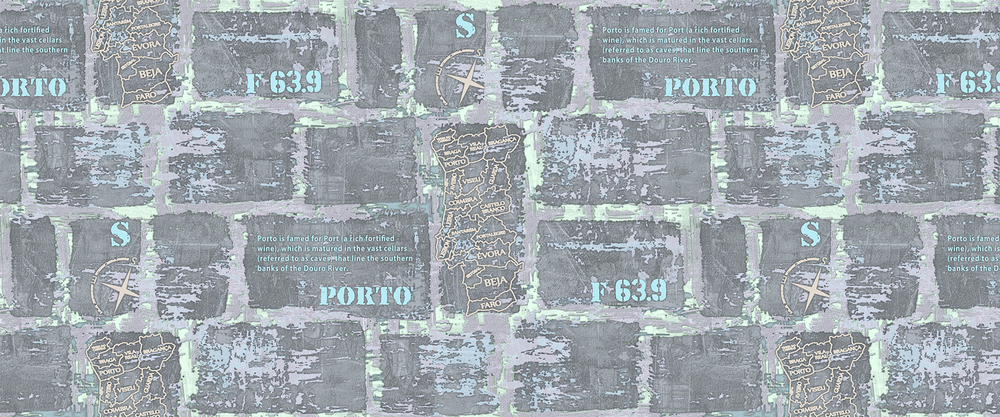 S
a rich fortified
in the vast cellars
that line the southern
ORTO
F 63.9
ÉVORA
BEJA
FARO
S
Porto is famed for Port (a rich fortified
wine), which is matured in the vast cellars
(referred to as caves) that line the southern
banks of the Douro River.
PORTO
F 63.9
ÉVORA
BEJA
FARO
BRAGANÇA
BRAGA
VILA REAL
PORTO
VISEU
GUARDA
COIMBRA
CASTELO
BRANCO
SANTARÉM
PORTALEGRE
ÉVORA
BEJA
FARO
S
Porto is famed for Port (a rich fortified
wine), which is matured in the vast cellars
(referred to as caves) that line the southern
banks of the Douro River.
PORTO
F 63.9
S
Porto is famed
wine), which is
(referred to as c
banks of the D
BRAGANÇA
BRAGA
VILA REAL
PORTO
VISEU
GUARDA
COIMBRA
CASTELO
BRAGANÇA
BRAGA
VILA REAL
PORTO
VISEU
GUARDA
COIMBRA
CASTELO